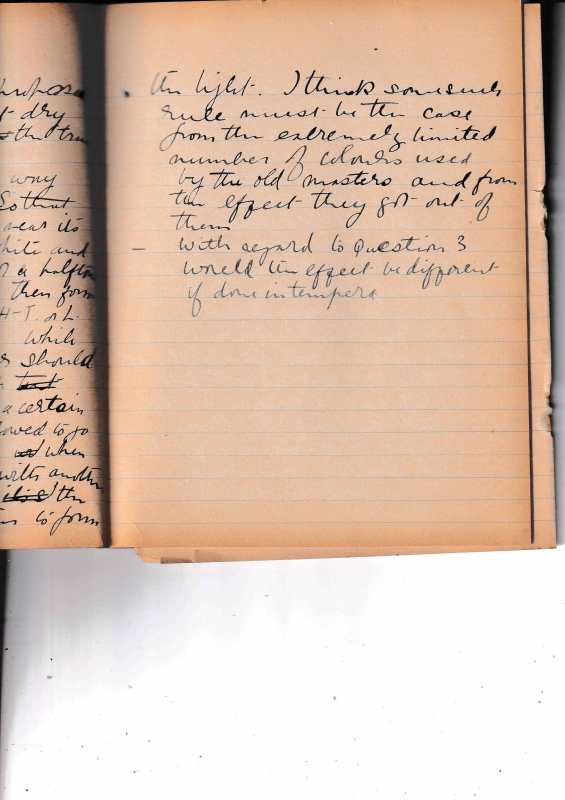 propose
t dry
& the tru
way
So that
near its
hite and
r a halfton
then form
H-T. or L.
while
rs should
that
a certain
lowed to go
when
with anothe
it is the
ns to form
the light. I think some such
rule must be the case
from the extremely limited
number of colours used
by the old masters and from
the effect they got out of
them
— With regard to Question 3
would the effect be different
if done in tempera